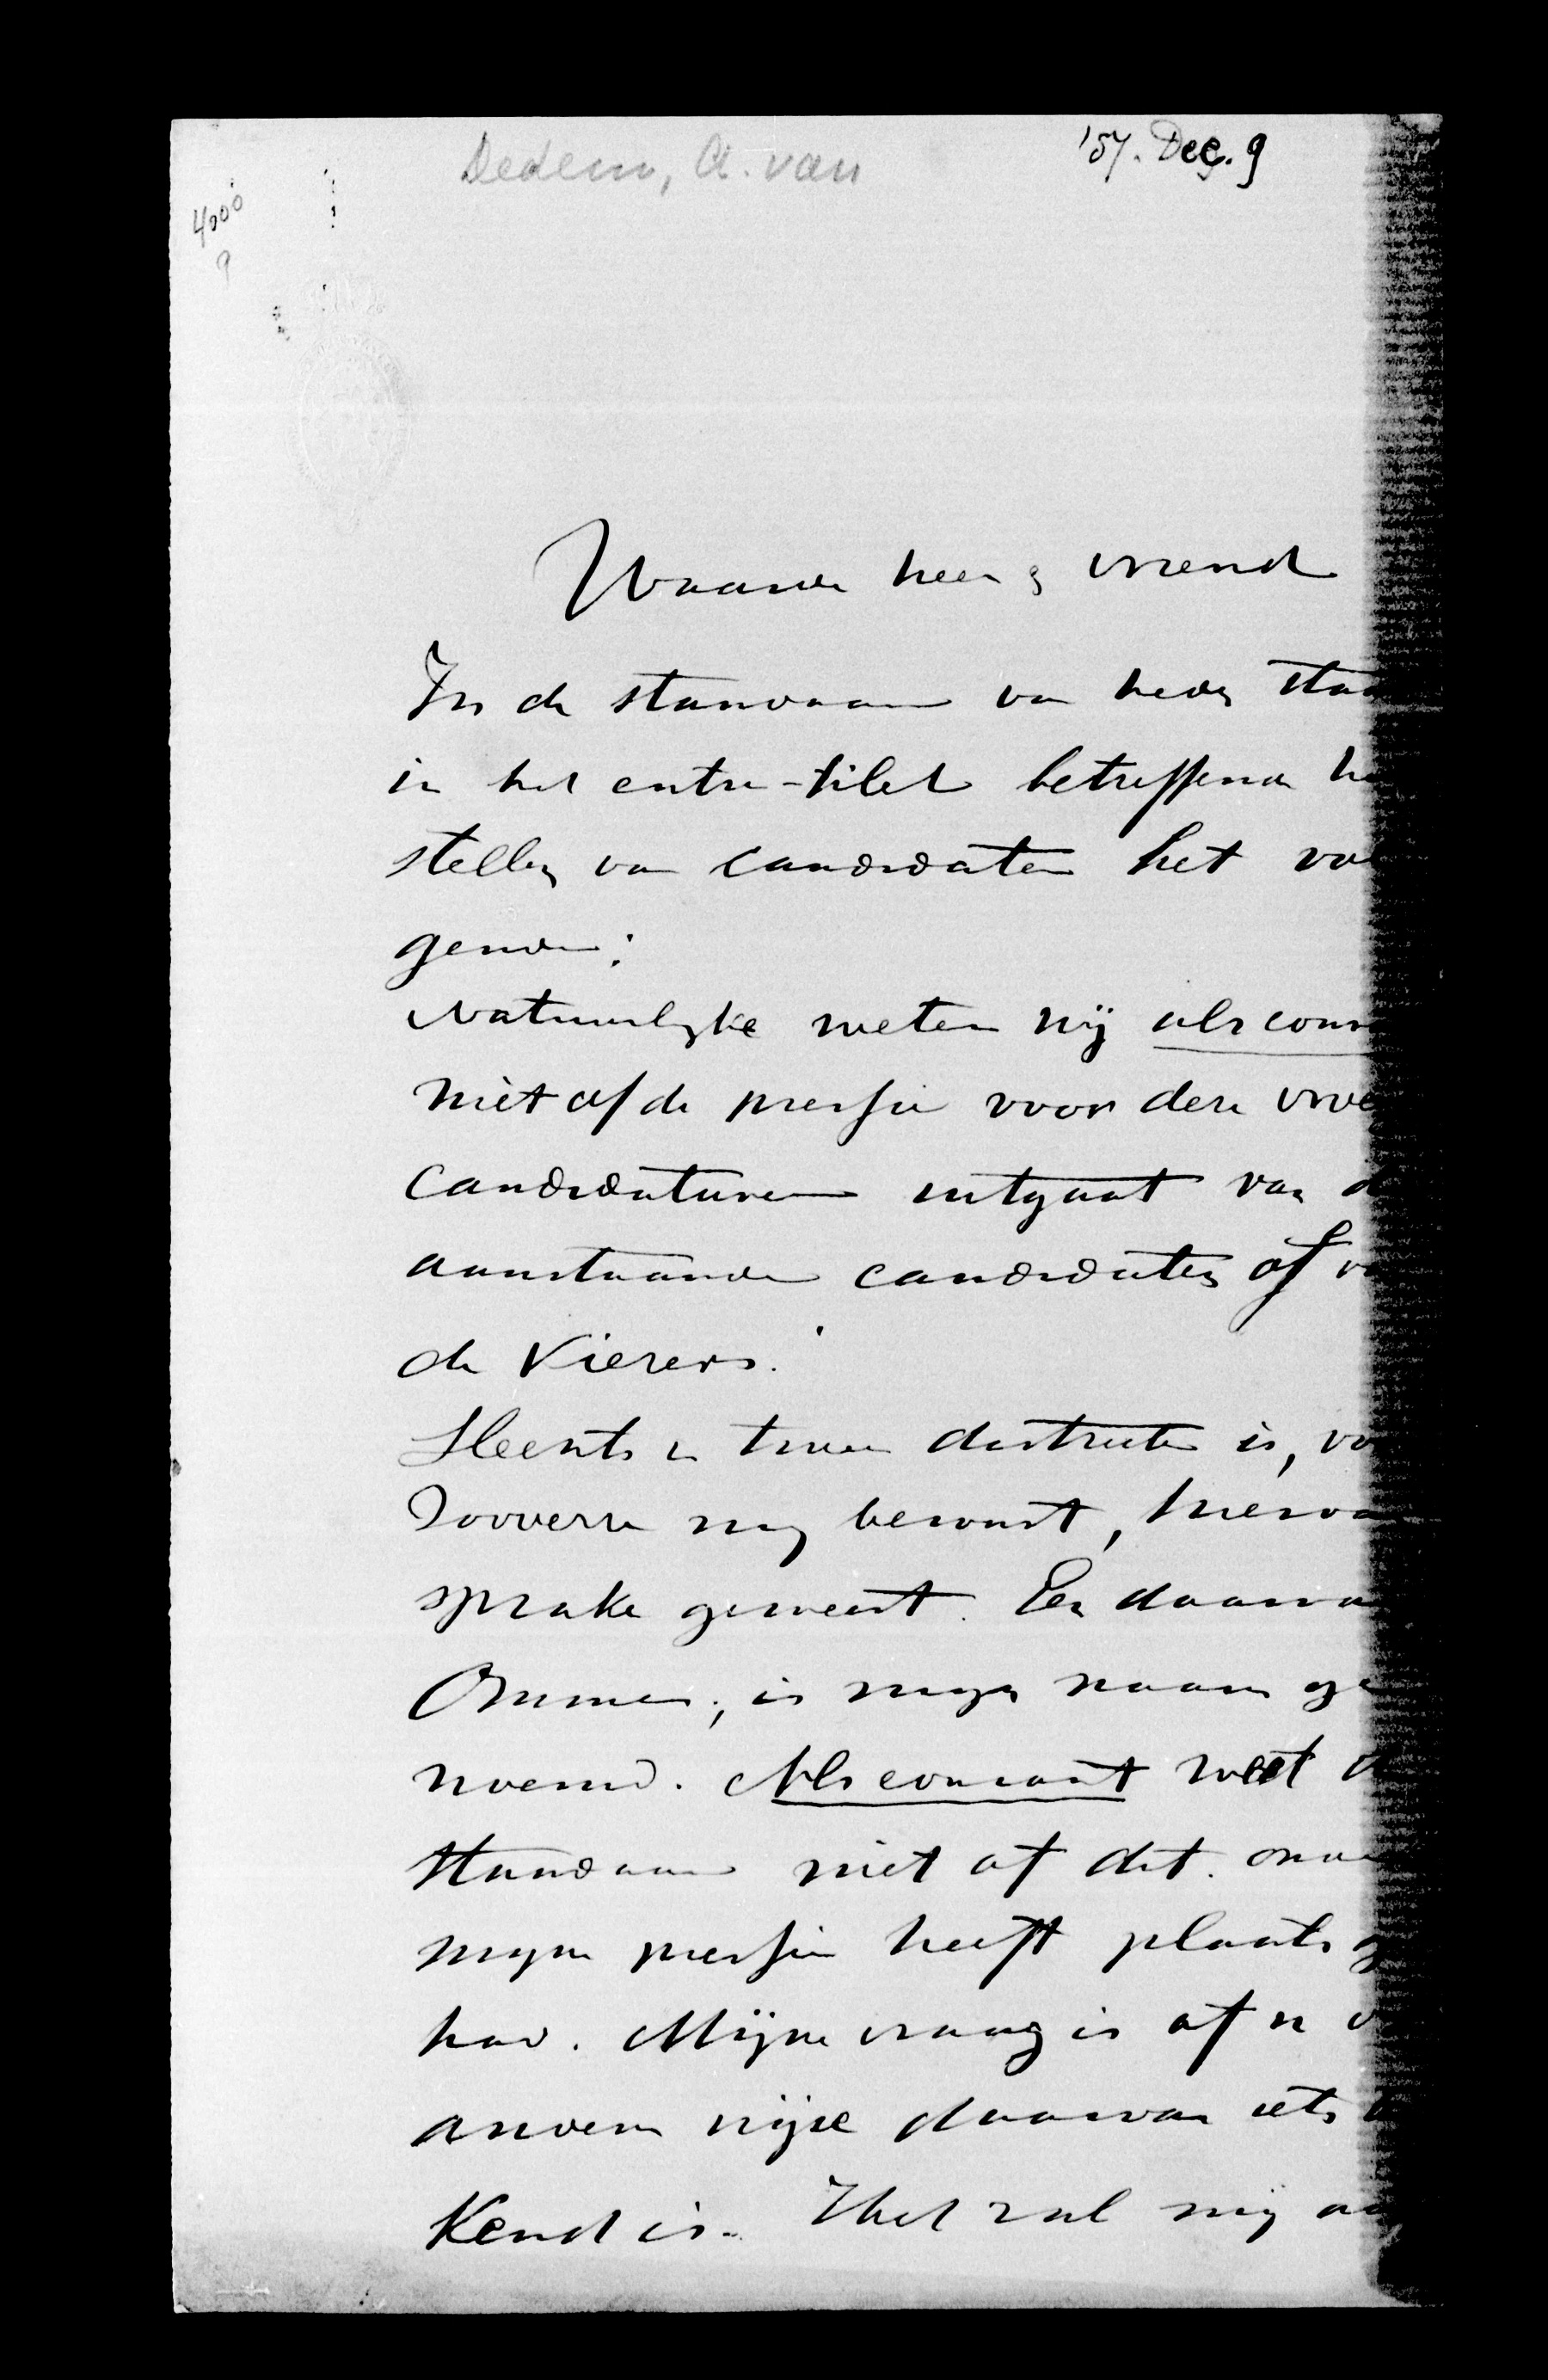 Dedem, A. van
'87. Dec. 9
4000
9
Waarde heer & vriend
In de standaard van heden staa
in het entre-filet betreffende he
stellen van candidaten het vol
gende:
Natuurlijke weten wij als cour
niet of de pressie voor deze vroe
candidaturen uitgaat van d
aanstaande candidaten of v
de Kiezers."
Slechts in twee districten is, vo
Zooverre mij bewust, hierva
sprake geweest. En daarva
Ommen, is mijn naam ge
noemd. Als courant weet d
standaard niet of dit. onde
mijne pressie heeft plaats g
had. Mijne vraag is of u o
andere wijze daarvan iets b
Kend is. Het zal mij aa